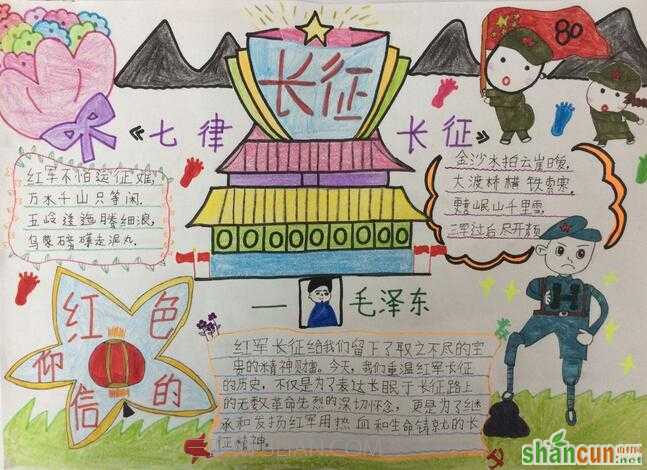 长征
80
《七律 长征》
红军不怕远征难,
万水千山只等闲.
五岭逶迤腾细浪,
乌蒙磅礴走泥丸.
金沙水拍云崖暖,
大渡桥横铁索寒.
更喜岷山千里雪,
三军过后尽开颜.
— 毛泽东
红色
仰信的
红军长征给我们留下了取之不尽的宝
贵的精神财富。今天,我们重温红军长征
的历史,不仅是为了表达长眠于长征路上
的无数革命先烈的深切怀念,更是为了继
承和发扬红军用热血和生命铸就的长
征精神。
shancun
山村网
.net